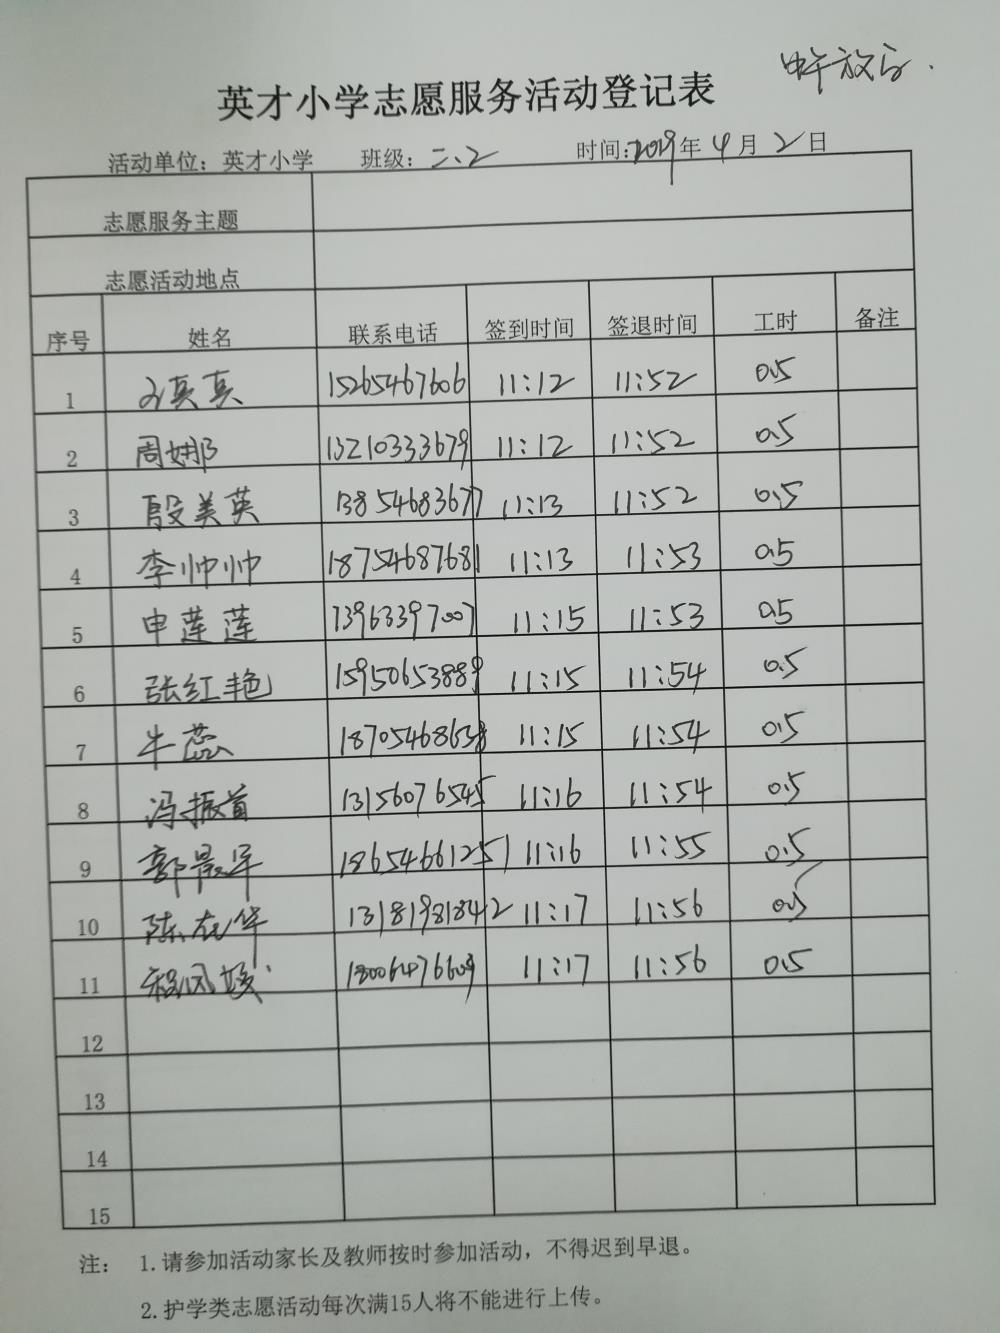 中午放学.
英才小学志愿服务活动登记表
活动单位：英才小学 班级：二.2 时间：2019年4月2日
志愿服务主题
志愿活动地点
序号 姓名 联系电话 签到时间 签退时间 工时 备注
1 真真 15265467606 11:12 11:52 0.5
2 周娜 13210333679 11:12 11:52 0.5
3 殷美英 13854683677 11:13 11:52 0.5
4 李帅帅 18754687681 11:13 11:53 0.5
5 申莲莲 13963397007 11:15 11:53 0.5
6 张红艳 15950653889 11:15 11:54 0.5
7 牛蕊 18705468638 11:15 11:54 0.5
8 冯振首 13156076545 11:16 11:54 0.5
9 郭晨军 18654661251 11:16 11:55 0.5
10 陈在华 13181981842 11:17 11:56 0.5
11 程凤 18006476609 11:17 11:56 0.5
12
13
14
15
注： 1.请参加活动家长及教师按时参加活动，不得迟到早退。
2.护学类志愿活动每次满15人将不能进行上传。